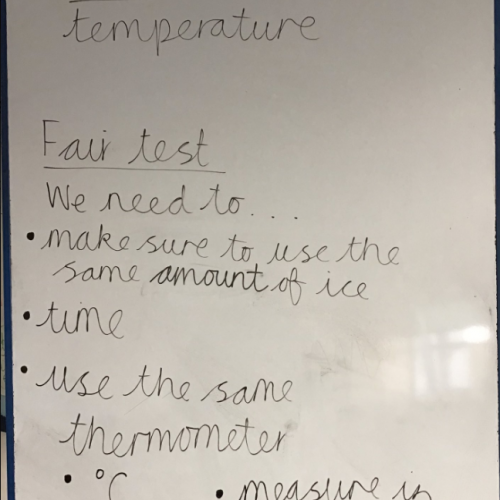 temperature
Fair test
We need to...
• make sure to use the
same amount of ice
• time
• use the same
thermometer
• °C • measure in